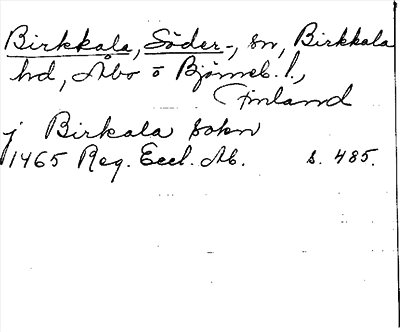 Birkkala, Söder-, sn, Birkkala
hd, Åbo o Björneb. l.,
Finland
j Birkala sokn
1465 Reg. Eccl. Ab. s. 485.